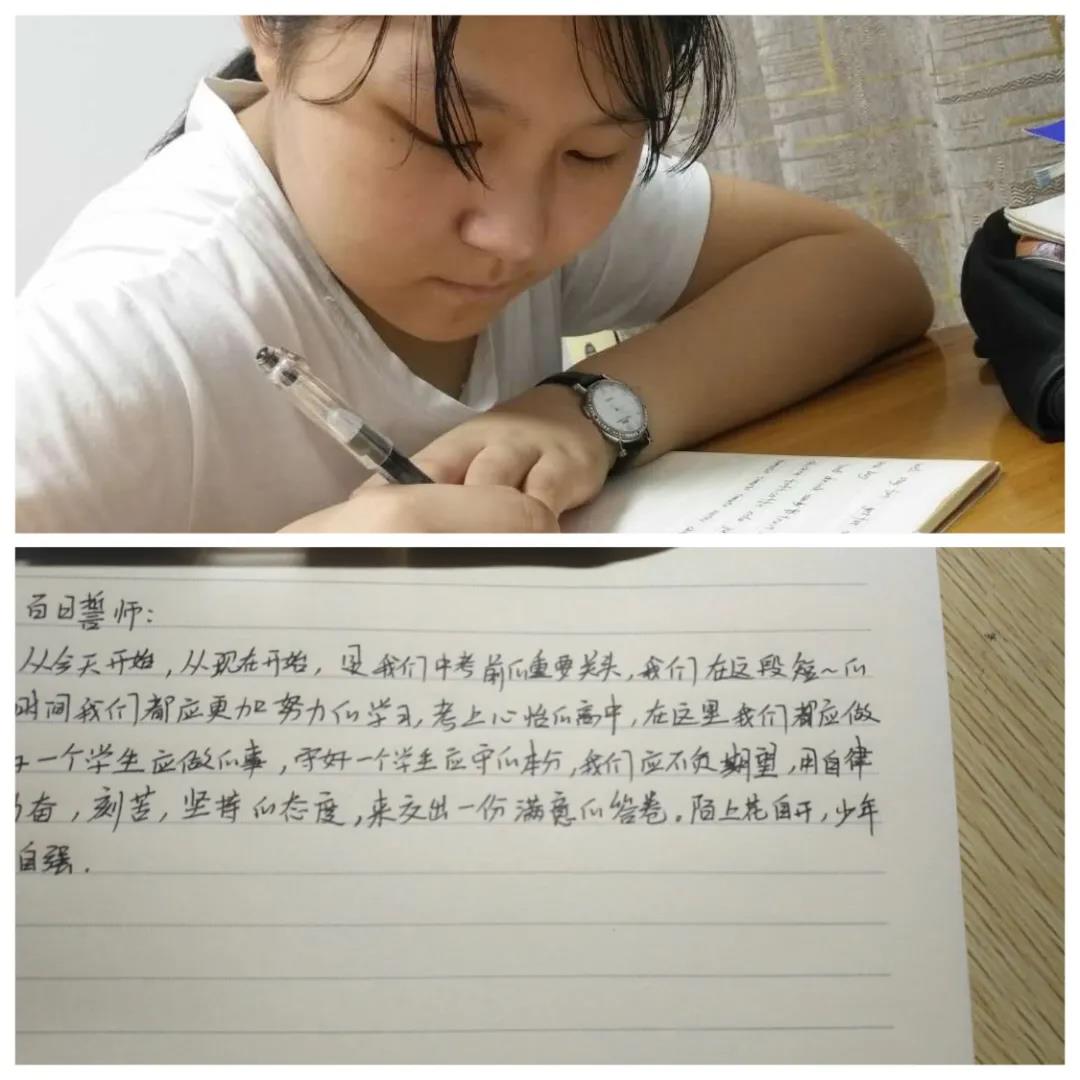 百日誓师：
从今天开始，从现在开始，是我们中考前的重要关头，我们在这段短~的
时间我们都应更加努力的学习，考上心怡的高中，在这里我们都应做
一个学生应做的事，守好一个学生应守的本分，我们应不负期望，用自律
奋，刻苦，坚持的态度，来交出一份满意的答卷。陌上花自开，少年
自强．